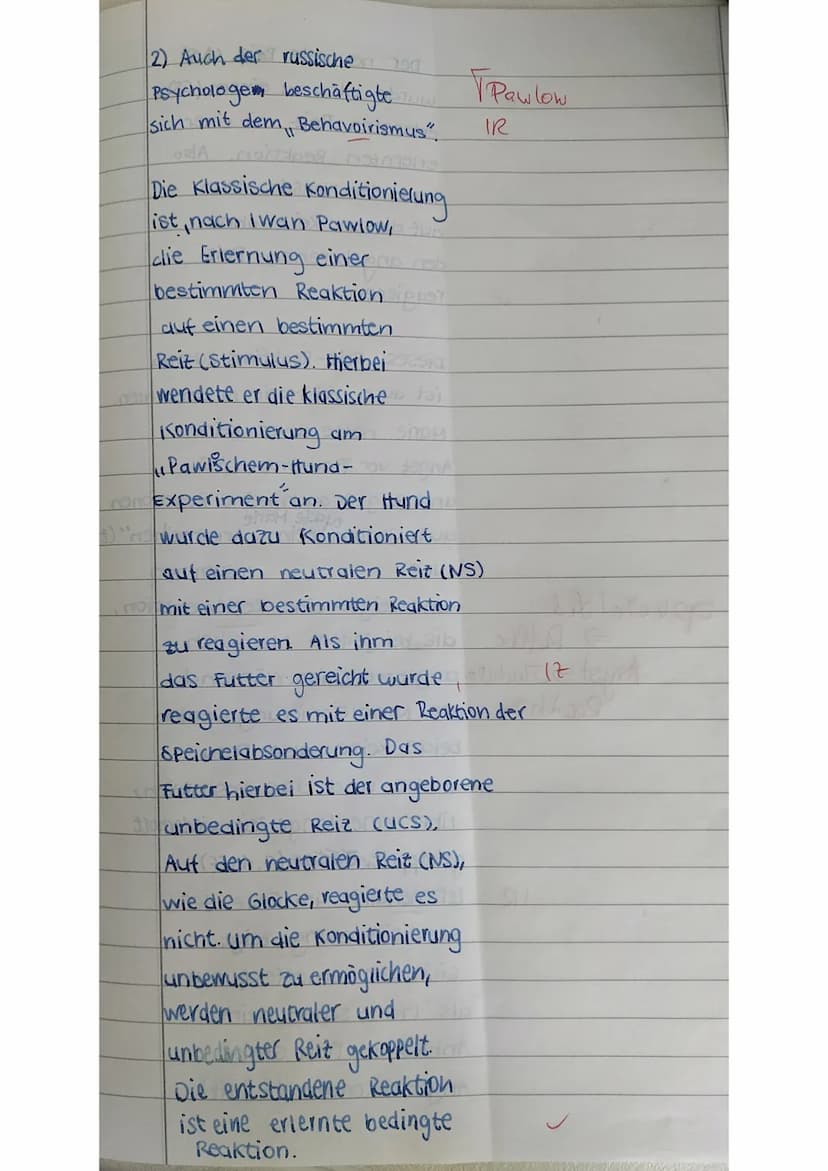 2) Auch der russische
Psychologem beschäftigte
√ Pawlow
sich mit dem „Behavoirismus".
IR
Die Klassische Konditionierung
ist, nach Iwan Pawlow,
die Erlernung einer
bestimmten Reaktion
auf einen bestimmten
Reiz (Stimulus). Hierbei
wendete er die klassische
Konditionierung am
„Pawlschem-Hund-
Experiment" an. Der Hund
wurde dazu Konditioniert
auf einen neutralen Reiz (NS)
mit einer bestimmten Reaktion
zu reagieren. Als ihm
das Futter gereicht wurde,
IZ
reagierte es mit einer Reaktion der
Speichelabsonderung. Das
Futter hierbei ist der angeborene
unbedingte Reiz (UCS).
Auf den neutralen Reiz (NS),
wie die Glocke, reagierte es
nicht. um die Konditionierung
unbewusst zu ermöglichen,
werden neutraler und
unbedingter Reiz gekoppelt.
Die entstandene Reaktion
ist eine erlernte bedingte
✓
Reaktion.